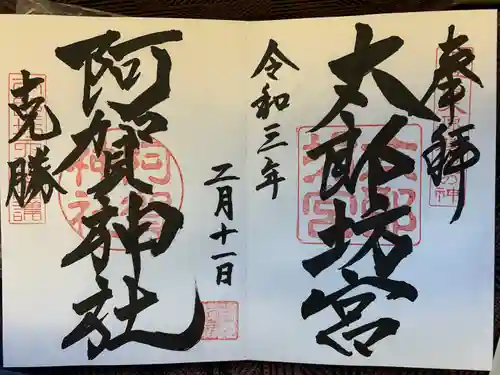 奉拝
太郎坊宮
令和三年
二月十一日
阿賀神社
克勝